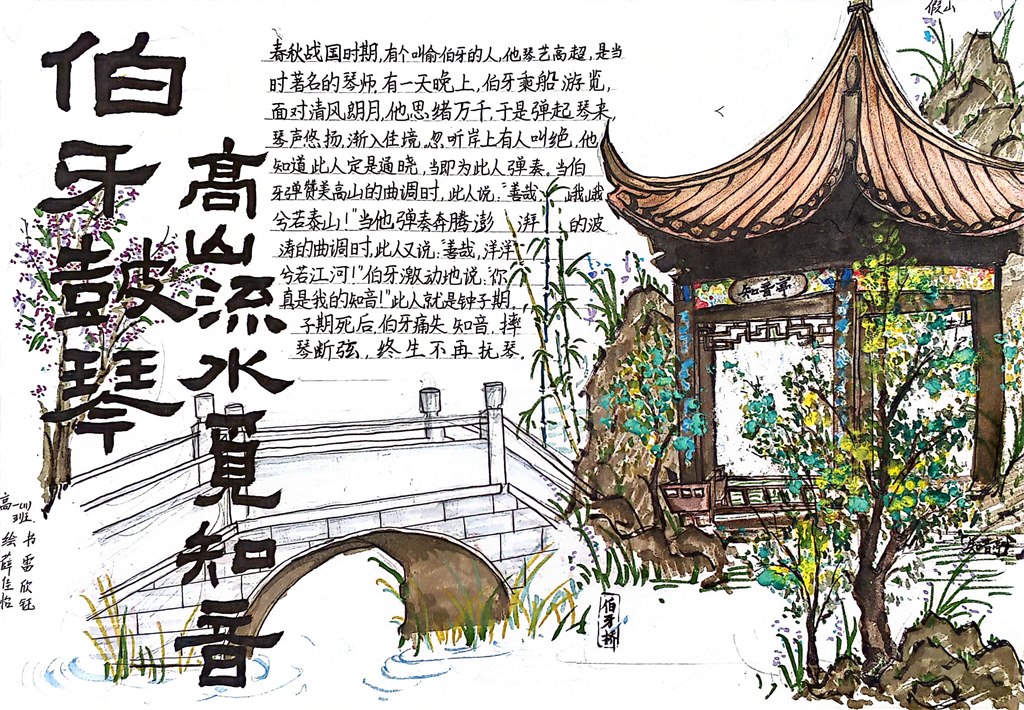 伯牙皷琴
高山流水覓知音
春秋战国时期,有个叫俞伯牙的人,他琴艺高超,是当
时著名的琴师.有一天晚上,伯牙乘船游览,
面对清风朗月,他思绪万千,于是弹起琴来,
琴声悠扬,渐入佳境,忽听岸上有人叫绝,他
知道此人定是通晓,当即为此人弹奏。当伯
牙弹赞美高山的曲调时,此人说:"善哉 峨峨
兮若泰山!"当他弹奏奔腾澎湃的波
涛的曲调时,此人又说:"善哉,洋洋
兮若江河!"伯牙激动地说:"你
真是我的知音!"此人就是钟子期.
子期死后,伯牙痛失知音,摔
琴断弦,终生不再抚琴.
假山
知音亭
伯牙桥
高一 班
书 雷欣钰
绘 薛佳怡